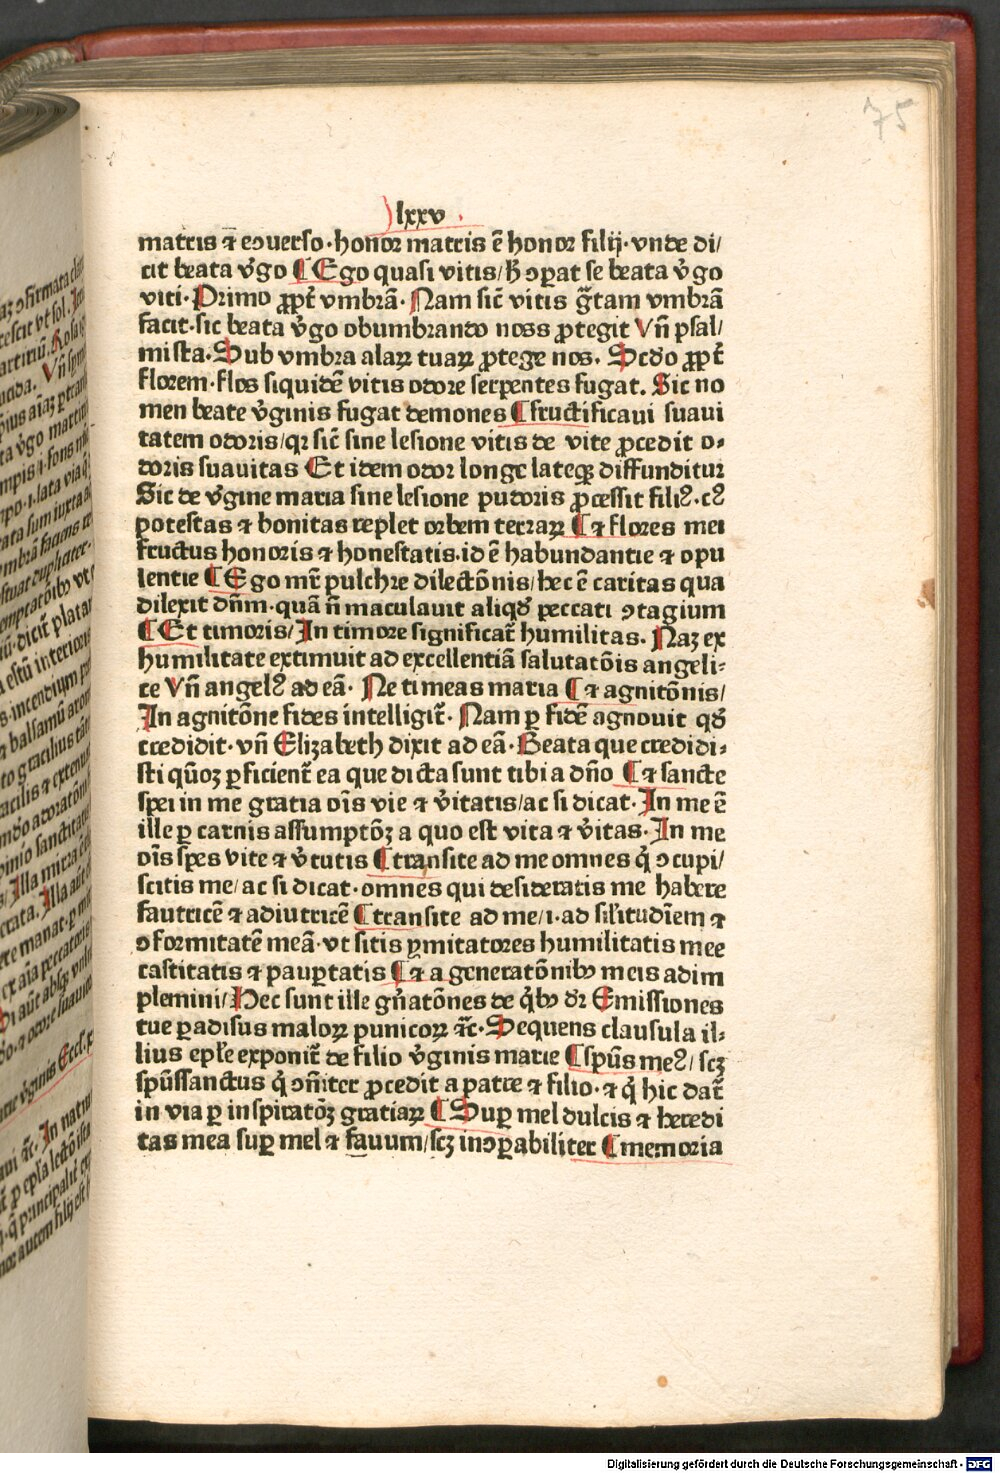 75
lxxv
matris ⁊ eↄuerso·honor matris ē honor filij·vnde di/
cit beata v̄go ¶ Ego quasi vitis/hͦ ↄꝑat se beata v̄go
viti·Primo ꝓpt̄ vmbrā·Nam sic̄ vitis gͣtam vmbrā
facit·sic beata v̄go obumbrando noss ꝓtegit Vn̄ psal/
mista·Sub vmbra alaꝝ tuaꝝ ꝓtege nos. Scdo ꝓpt̄
florem·flos siquidē vitis odore serpentes fugat. Sic no
men beate v̄ginis fugat demones ¶ fructificaui suaui
tatem odoris/qꝛ sic̄ sine lesione vitis de vite ꝓcedit o⸗
doris suauitas Et idem odor longe lateqꝫ diffunditur
Sic de v̄gine maria sine lesione pudoris ꝓcessit filiꝰ.cꝰ
potestas ⁊ bonitas replet orbem terraꝝ ¶ ⁊ flores mei
fructus honoris ⁊ honestatis.id ē habundantie ⁊ opu
lentie ¶ Ego mr̄ pulchre dilectōnis/hec ē caritas qua
dilexit dn̄m·quā n̄ maculauit aliqd̄ peccati ↄtagium
¶ Et timoris/In timore significat̄ humilitas. Naꝫ ex
humilitate extimuit ad excellentiā salutatōis angeli⸗
ce Vn̄ angelꝰ ad eā· Ne timeas maria ¶ ⁊ agnitōnis/
In agnitōne fides intelligit̄· Nam ꝑ fidē agnouit qd̄
credidit·vn̄ Elizabeth dixit ad eā·Beata que credidi⸗
sti qūoꝫ ꝑficient̄ ea que dicta sunt tibi a dn̄o ¶ ⁊ sancte
spei in me gratia oīs vie ⁊ v̄itatis/ac si dicat·In me ē
ille ꝑ carnis assumptōꝫ a quo est vita ⁊ v̄itas·In me
oīs spes vite ⁊ v̄tutis ¶ transite ad me omnes q̄ ↄcupi/
scitis me/ac si dicat·omnes qui desideratis me habere
fautricē ⁊ adiutricē ¶ transite ad me/i·ad sil'itudīem ⁊
ↄformitatē meā·vt sitis ymitatores humilitatis mee
castitatis ⁊ pauꝑtatis ¶ ⁊ a generatōnibꝫ meis adim
plemini/Hec sunt ille gn̄atōnes de q̄bꝫ dr̄ Emissiones
tue ꝑadisus maloꝝ punicoꝝ ⁊c̄·Sequens clausula il⸗
lius epl'e exponit̄ de filio v̄ginis marie ¶ spūs meꝰ/scꝫ
spūssanctus q̄ ↄīter ꝓcedit a patre ⁊ filio·⁊ q̄ hic dat̄
in via ꝑ inspiratōꝫ gratiaꝝ ¶ Suꝑ mel dulcis ⁊ heredi
tas mea suꝑ mel ⁊ fauum/scꝫ inↄꝑabiliter ¶ memoria
Digitalisierung gefördert durch die Deutsche Forschungsgemeinschaft - DFG